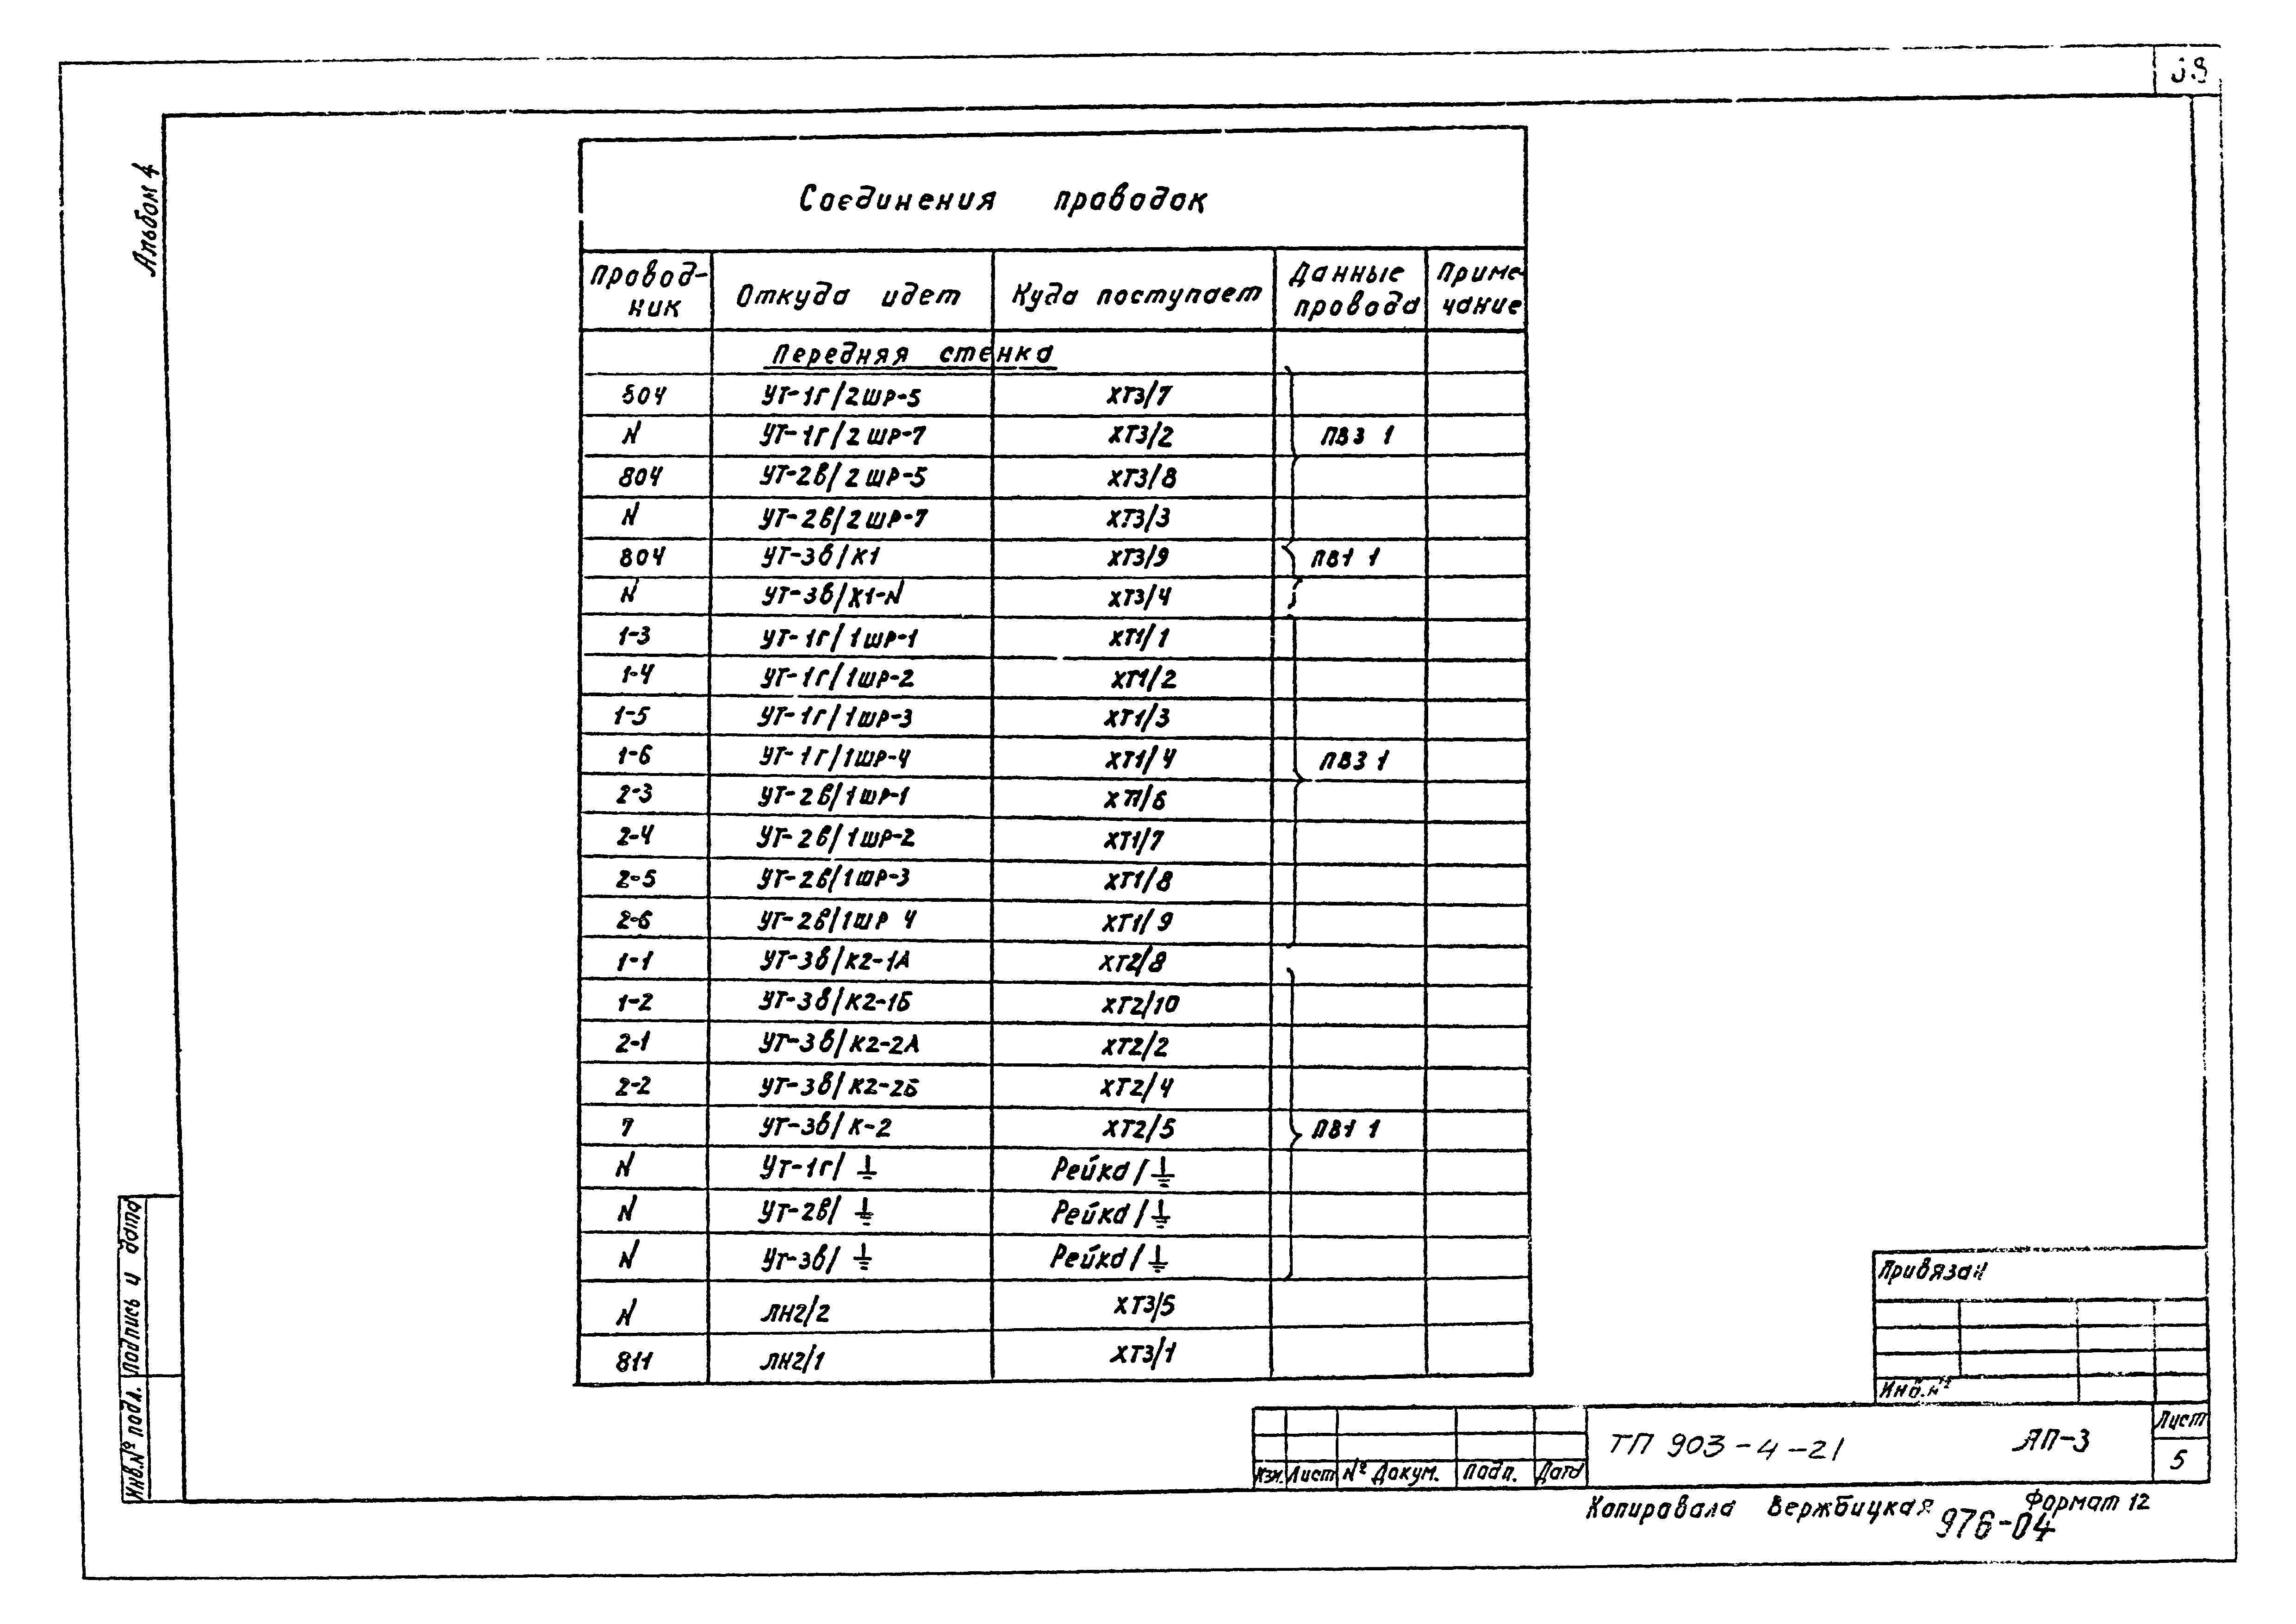 Альбом 4
Соединения проводок
Провод-ник | Откуда идет | Куда поступает | Данные провода | Приме-чание
Передняя стенка
804 | УТ-1г/2шр-5 | ХТ3/7
N | УТ-1г/2шр-7 | ХТ3/2 | ПВ3 1
804 | УТ-2в/2шр-5 | ХТ3/8
N | УТ-2в/2шр-7 | ХТ3/3
804 | УТ-3в/К1 | ХТ3/9 | ПВ1 1
N | УТ-3в/Х1-N | ХТ3/4
1-3 | УТ-1г/1шр-1 | ХТ1/1
1-4 | УТ-1г/1шр-2 | ХТ1/2
1-5 | УТ-1г/1шр-3 | ХТ1/3
1-6 | УТ-1г/1шр-4 | ХТ1/4 | ПВ3 1
2-3 | УТ-2в/1шр-1 | ХТ1/6
2-4 | УТ-2в/1шр-2 | ХТ1/7
2-5 | УТ-2в/1шр-3 | ХТ1/8
2-6 | УТ-2в/1шр 4 | ХТ1/9
1-1 | УТ-3в/К2-1А | ХТ2/8
1-2 | УТ-3в/К2-1Б | ХТ2/10
2-1 | УТ-3в/К2-2А | ХТ2/2
2-2 | УТ-3в/К2-2Б | ХТ2/4
7 | УТ-3в/К-2 | ХТ2/5 | ПВ1 1
N | УТ-1г/⏚ | Рейка/⏚
N | УТ-2в/⏚ | Рейка/⏚
N | УТ-3в/⏚ | Рейка/⏚
N | ЛН2/2 | ХТ3/5
811 | ЛН2/1 | ХТ3/1
Инв.№ подл. | Подпись и дата
Привязан
Инв.№
Изм. | Лист | № Докум. | Подп. | Дата
ТП 903-4-21 АП-3
Лист
5
Копировала Вержбицкая Формат 12
976-04